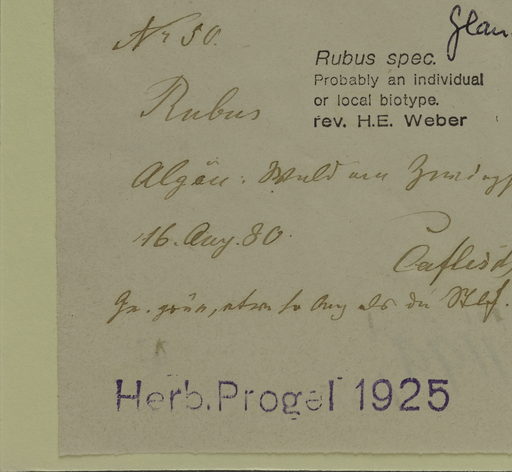 Nr 50.
Glan
Rubus spec.
Probably an individual
or local biotype.
rev. H.E. Weber
Rubus
Algäu: Wald am
16. Aug. 80.
Caflisch
Gr. grün, etwas so lang als die Stbf.
Herb. Progel 1925